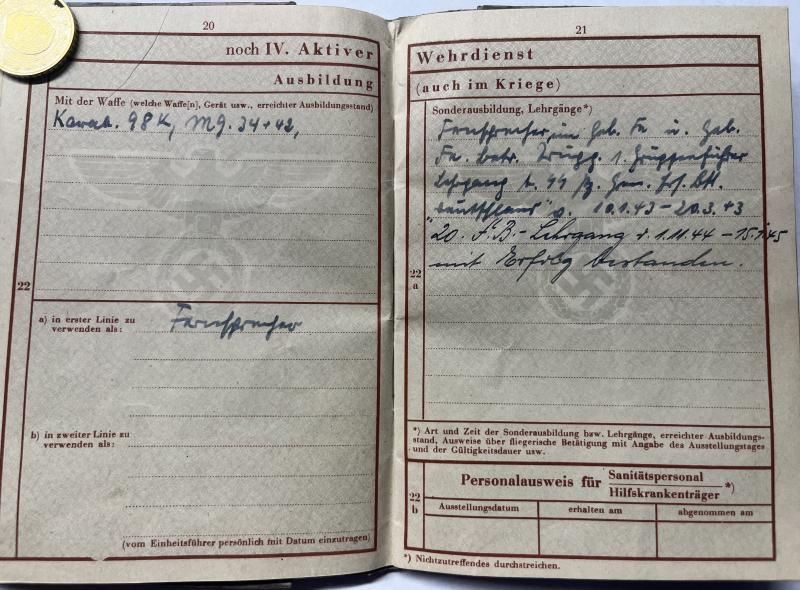 20
noch IV. Aktiver
Ausbildung
Mit der Waffe (welche Waffe[n], Gerät usw., erreichter Ausbildungsstand)
Karab. 98 K, MG. 34 + 42,
22
a) in erster Linie zu
verwenden als:
Fernsprecher
b) in zweiter Linie zu
verwenden als:
(vom Einheitsführer persönlich mit Datum einzutragen)
21
Wehrdienst
(auch im Kriege)
Sonderausbildung, Lehrgänge*)
Fernsprecher, im Geb. Fe u. Geb.
Fe. betr. Trupp, Gruppenführer
Lehrgang b. SS Pz. Gren.
"Deutschland" v. 10.1.43 – 20.3.43
20. F.B.- Lehrgang v. 1.11.44 – 15.1.45
mit Erfolg bestanden.
22
a
*) Art und Zeit der Sonderausbildung bzw. Lehrgänge, erreichter Ausbildungs-
stand, Ausweise über fliegerische Betätigung mit Angabe des Ausstellungstages
und der Gültigkeitsdauer usw.
22
b
Personalausweis für Sanitätspersonal
Hilfskrankenträger *)
Ausstellungsdatum erhalten am abgenommen am
*) Nichtzutreffendes durchstreichen.